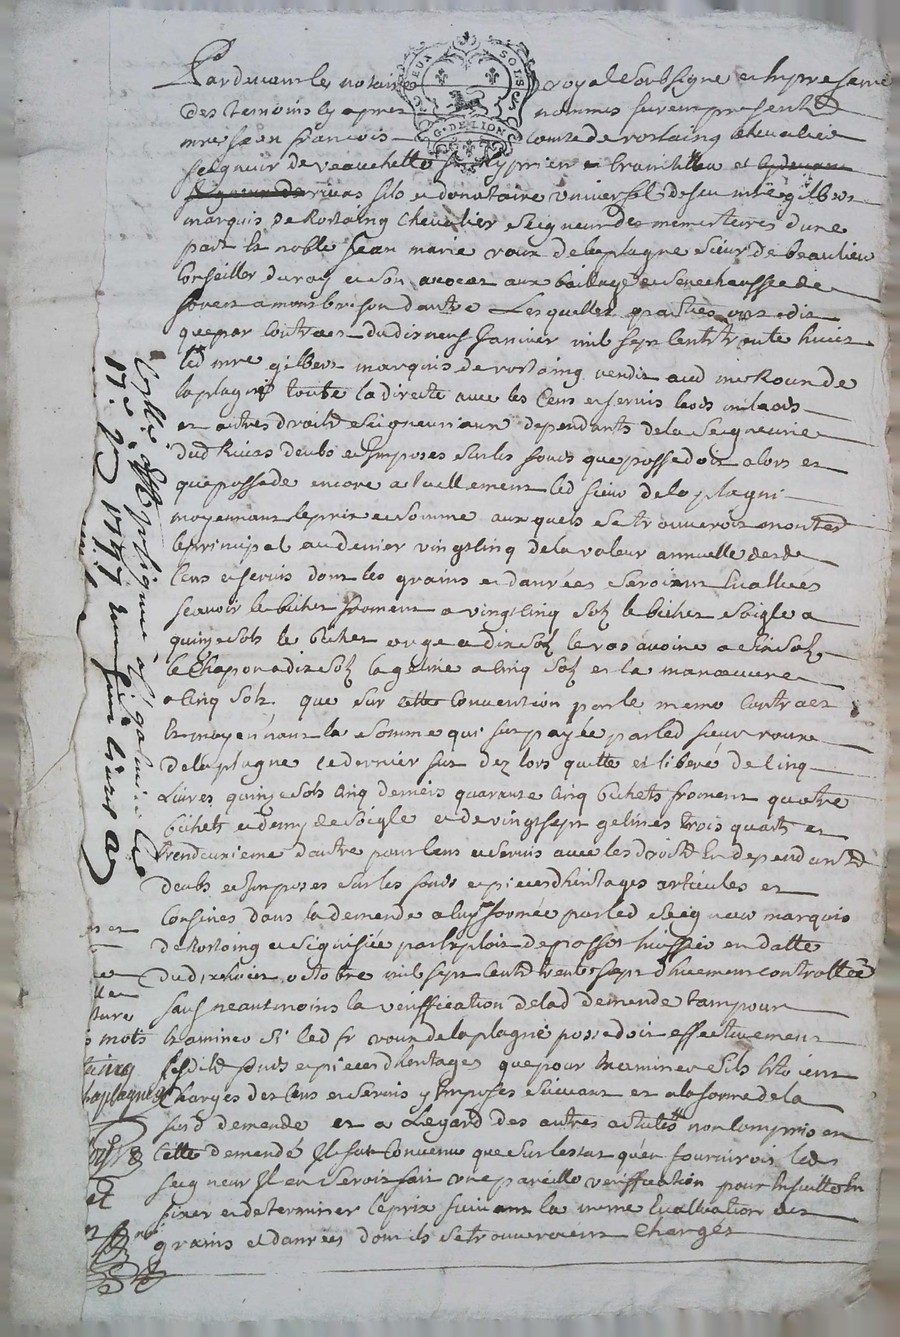 Pardevant le notaire royal soubsigne et en presence
des temoins cy apres nommés furent presents
mre Jean François comte de rostaing chevalier
seigneur de veauchette St Cyprien et
rivas fils et donataire universel de feu mre gilbert
marquis de Rostaing chevallier seigneur des memes terres d'une
part et noble Jean marie roux de la plagne sieur de beaulieu
Conseiller du roy et son avocat aux bailliage et senechaussée de
forets a montbrison d'autre Lesquelles parties ont dit
que par contract du dix neuf Janvier mil sept cent trente huict
led mre gilbert marquis de rostaing vendit aud mre Roux de
laplagne toute la directe avec les Cens et servis laods milaods
et autres droits seigneuriaux dependants de la seigneurie
dud Rivas deubs et Imposes sur les fonds que possedoit alors et
que possede encore actuellement led sieur de la plagne
moyennant le prix et somme auxquels se trouveroit monter
le principal au denier vingt cinq de la valeur annuelle desd
Cens et servis dont les grains et danrées seroient Evallués
scavoir le bichet froment a vingt cinq sols le bichet seigle a
quinze sols le bichet orge a dix sols le ras avoine a six sols
le Chapon a dix sols la geline a cinq sols et la manoeuvre
a Cinq sols. que sur cette Convention par le meme Contract
Et moyennant la somme qui fut payée par led sieur roux
de la plagne ce dernier fut dez lors quitte et liberé de Cinq
Livres quinze sols cinq deniers quarante cinq bichets froment quatre
bichets et demy de seigle et de vingt sept gelines trois quarts et
trendeuxieme d'autre pour Cens et servis avec les droits En dependants
deubs et Imposes sur les fonds et pieces d'heritages articulés et
Confinés dans la demande a luy formée par led seigneur marquis
de Rostaing et signifiée par Exploit de huissier en datte
du dixhuict octobre mil sept cent trente sept d'huement controllée
sauf neantmoins la veriffication de lad demande tant pour
Examiner si led sr roux de la plagne possedoit effectivement
lesdits fonds et pieces d'heritages que pour Examiner s'ils Etoient
Chargés des Cens et servis y Imposés suivant et a la forme de la
susd demande et a L'egard des autres articles non Compris en
Cette demande Il fut Convenu que sur l'estat qu'en fourniroit led
seigneur Il en seroit fait une pareille veriffication pour Ensuitte En
fixer et determiner le prix suivant la meme Evalluation des
grains et danrées dont ils se trouveroient Chargés
G. DE LION
mots
laplagne